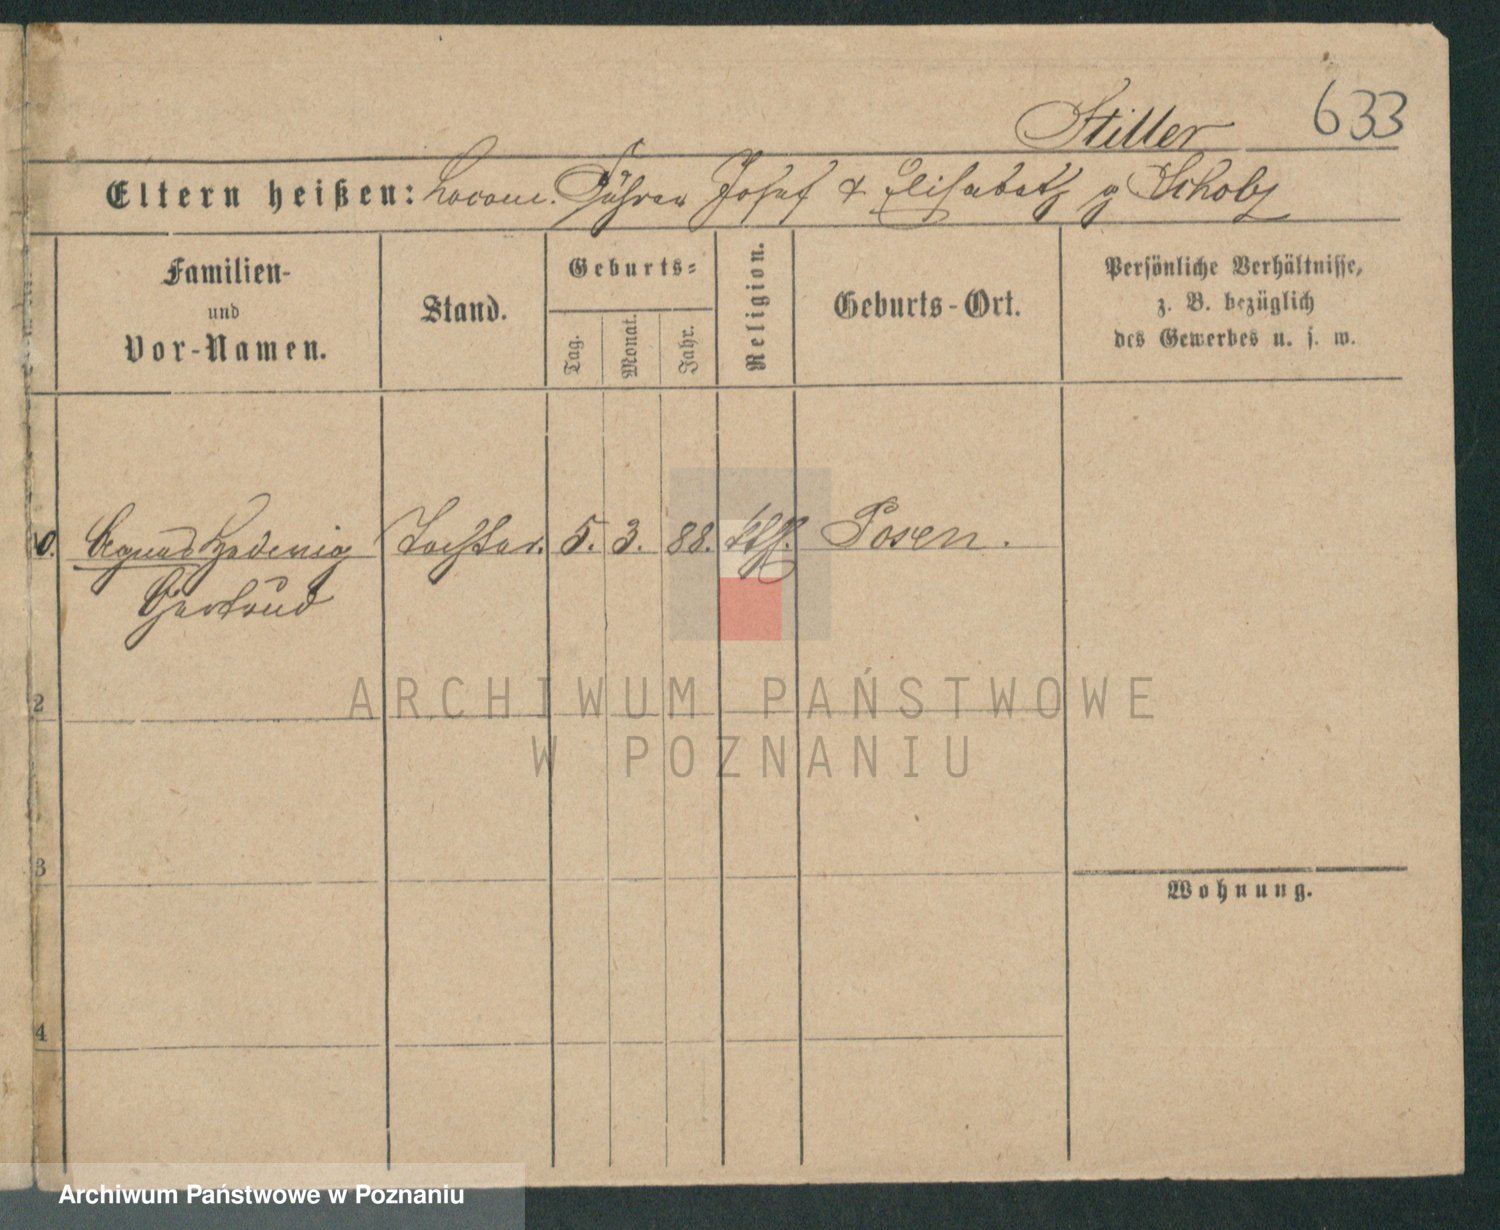 633
Stiller
Eltern heißen: Locom. Führer Josef & Elisabeth g Scholz
Familien-
und
Vor-Namen.
Stand.
Geburts-
Tag.
Monat.
Jahr.
Religion.
Geburts-Ort.
Persönliche Verhältnisse,
z. B. bezüglich
des Gewerbes u. s. w.
Agnes Hedwig Tochter. 5. 3. 88. kth. Posen.
Gertrud
2
3
4
Wohnung.
ARCHIWUM PAŃSTWOWE
W POZNANIU
Archiwum Państwowe w Poznaniu